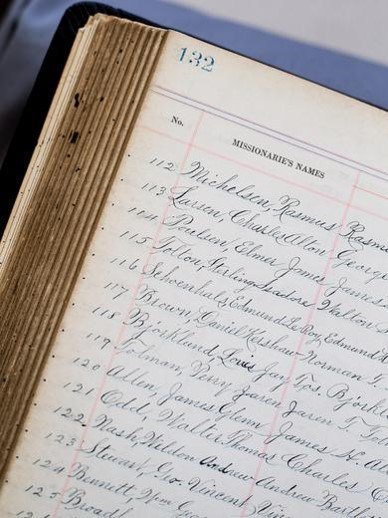 132
No. MISSIONARIE'S NAMES
112 Michelsen, Rasmus Rasmu
113 Larsen, Charles Alton George
114 Poulsen, Elmer Jones James
115 Tolton, Sterling Isadore Walton
116 Schoenhals, Edmund Le Roy Edmund
117 Brown, Daniel Kershaw Norman
118 Björklund, Louis Gay Jos. Björk
119 Tolman, Perry Jaren Jaren T.
120 Allen, James Glenn James W.
121 Odd, Walter Thomas Charles
122 Nash, Weldon Andrew Andrew Bartle
123 Stewart, Geo. Vincent Vincen
124 Bennett, Wm Geo
125 Broadb